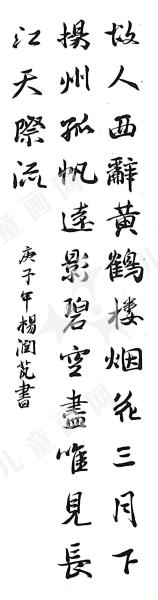 故人西辭黃鶴樓烟花三月下
揚州孤帆遠影碧空盡唯見長
江天際流
庚子年楊潤芃書